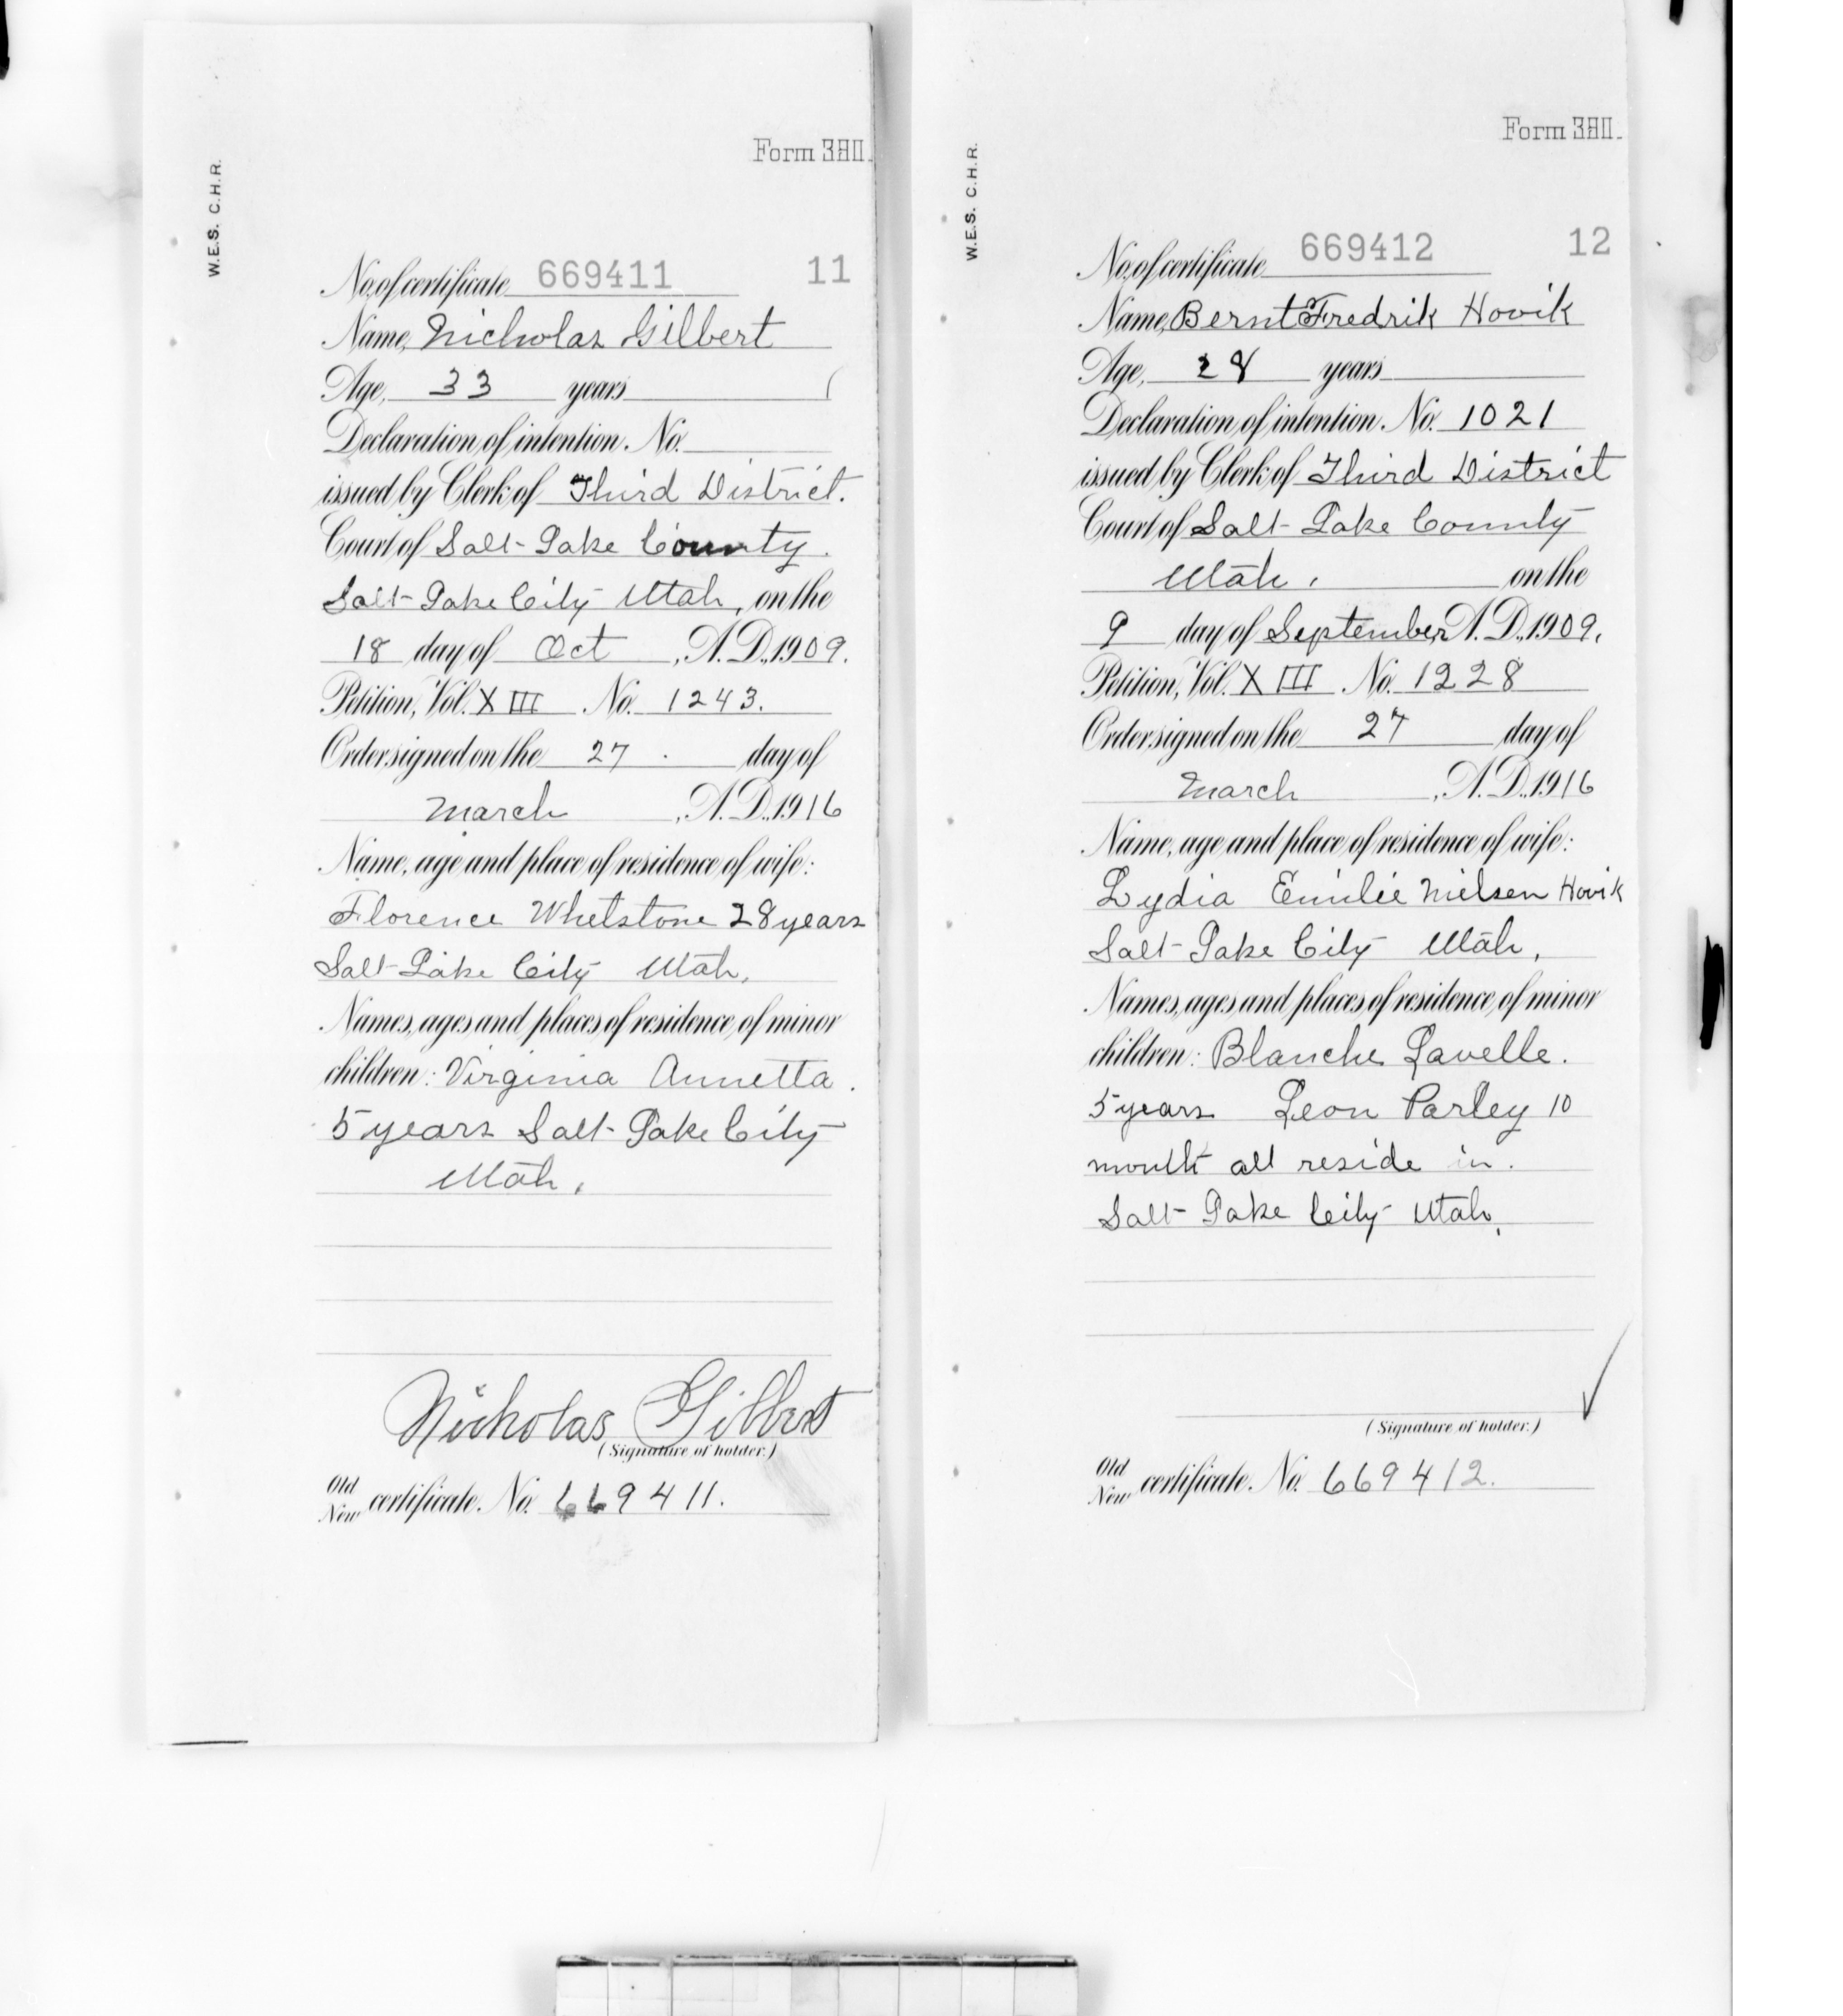 Form 380.
W.E.S. C.H.R.
No. of certificate 669411 11
Name, Nicholas Gilbert
Age, 33 years
Declaration of intention. No.
issued by Clerk of Third District.
Court of Salt Lake County.
Salt Lake City Utah, on the
18 day of Oct, A.D., 1909.
Petition, Vol. XIII No. 1243.
Order signed on the 27 day of
March, A.D., 1916
Name, age and place of residence of wife:
Florence Whetstone 28 years
Salt Lake City Utah,
Names, ages and places of residence of minor
children: Virginia Annetta.
5 years Salt Lake City
Utah.
Nicholas Gilbert
(Signature of holder.)
Old
New certificate. No. 669411.
Form 380.
W.E.S. C.H.R.
No. of certificate 669412 12
Name, Bernt Fredrik Hovik
Age, 28 years
Declaration of intention. No. 1021
issued by Clerk of Third District
Court of Salt Lake County
Utah, on the
9 day of September, A.D., 1909.
Petition, Vol. XIII No. 1228
Order signed on the 27 day of
March, A.D., 1916
Name, age and place of residence of wife:
Lydia Emilie Nielsen Hovik
Salt Lake City Utah,
Names, ages and places of residence of minor
children: Blanche Lavelle.
5 years Leon Parley 10
month all reside in.
Salt Lake City Utah.
(Signature of holder.)
Old
New certificate. No. 669412.